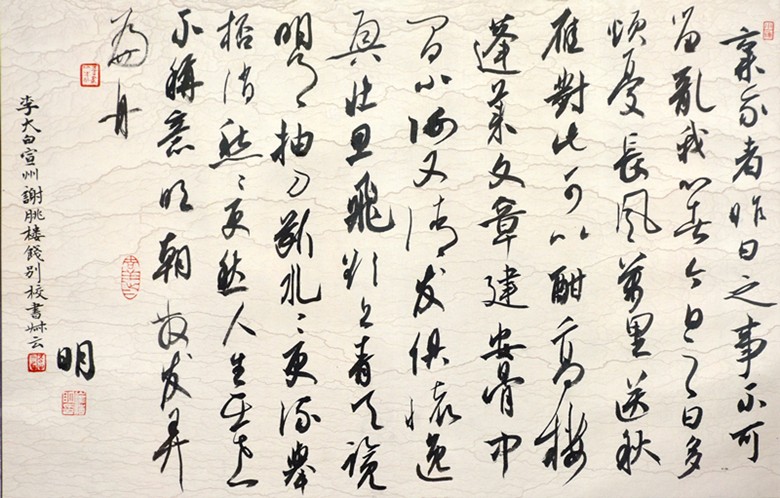 棄我者昨日之事不可
留亂我心者今日之日多
煩憂長風萬里送秋
雁對此可以酣高樓
蓬萊文章建安骨中
間小謝又清發俱懷逸
興壯思飛欲上青天覽
明月抽刀斷水々更流舉
杯消愁々更愁人生在世
不稱意明朝散发弄
扁舟
李太白宣州謝朓楼餞別校書叔云
明